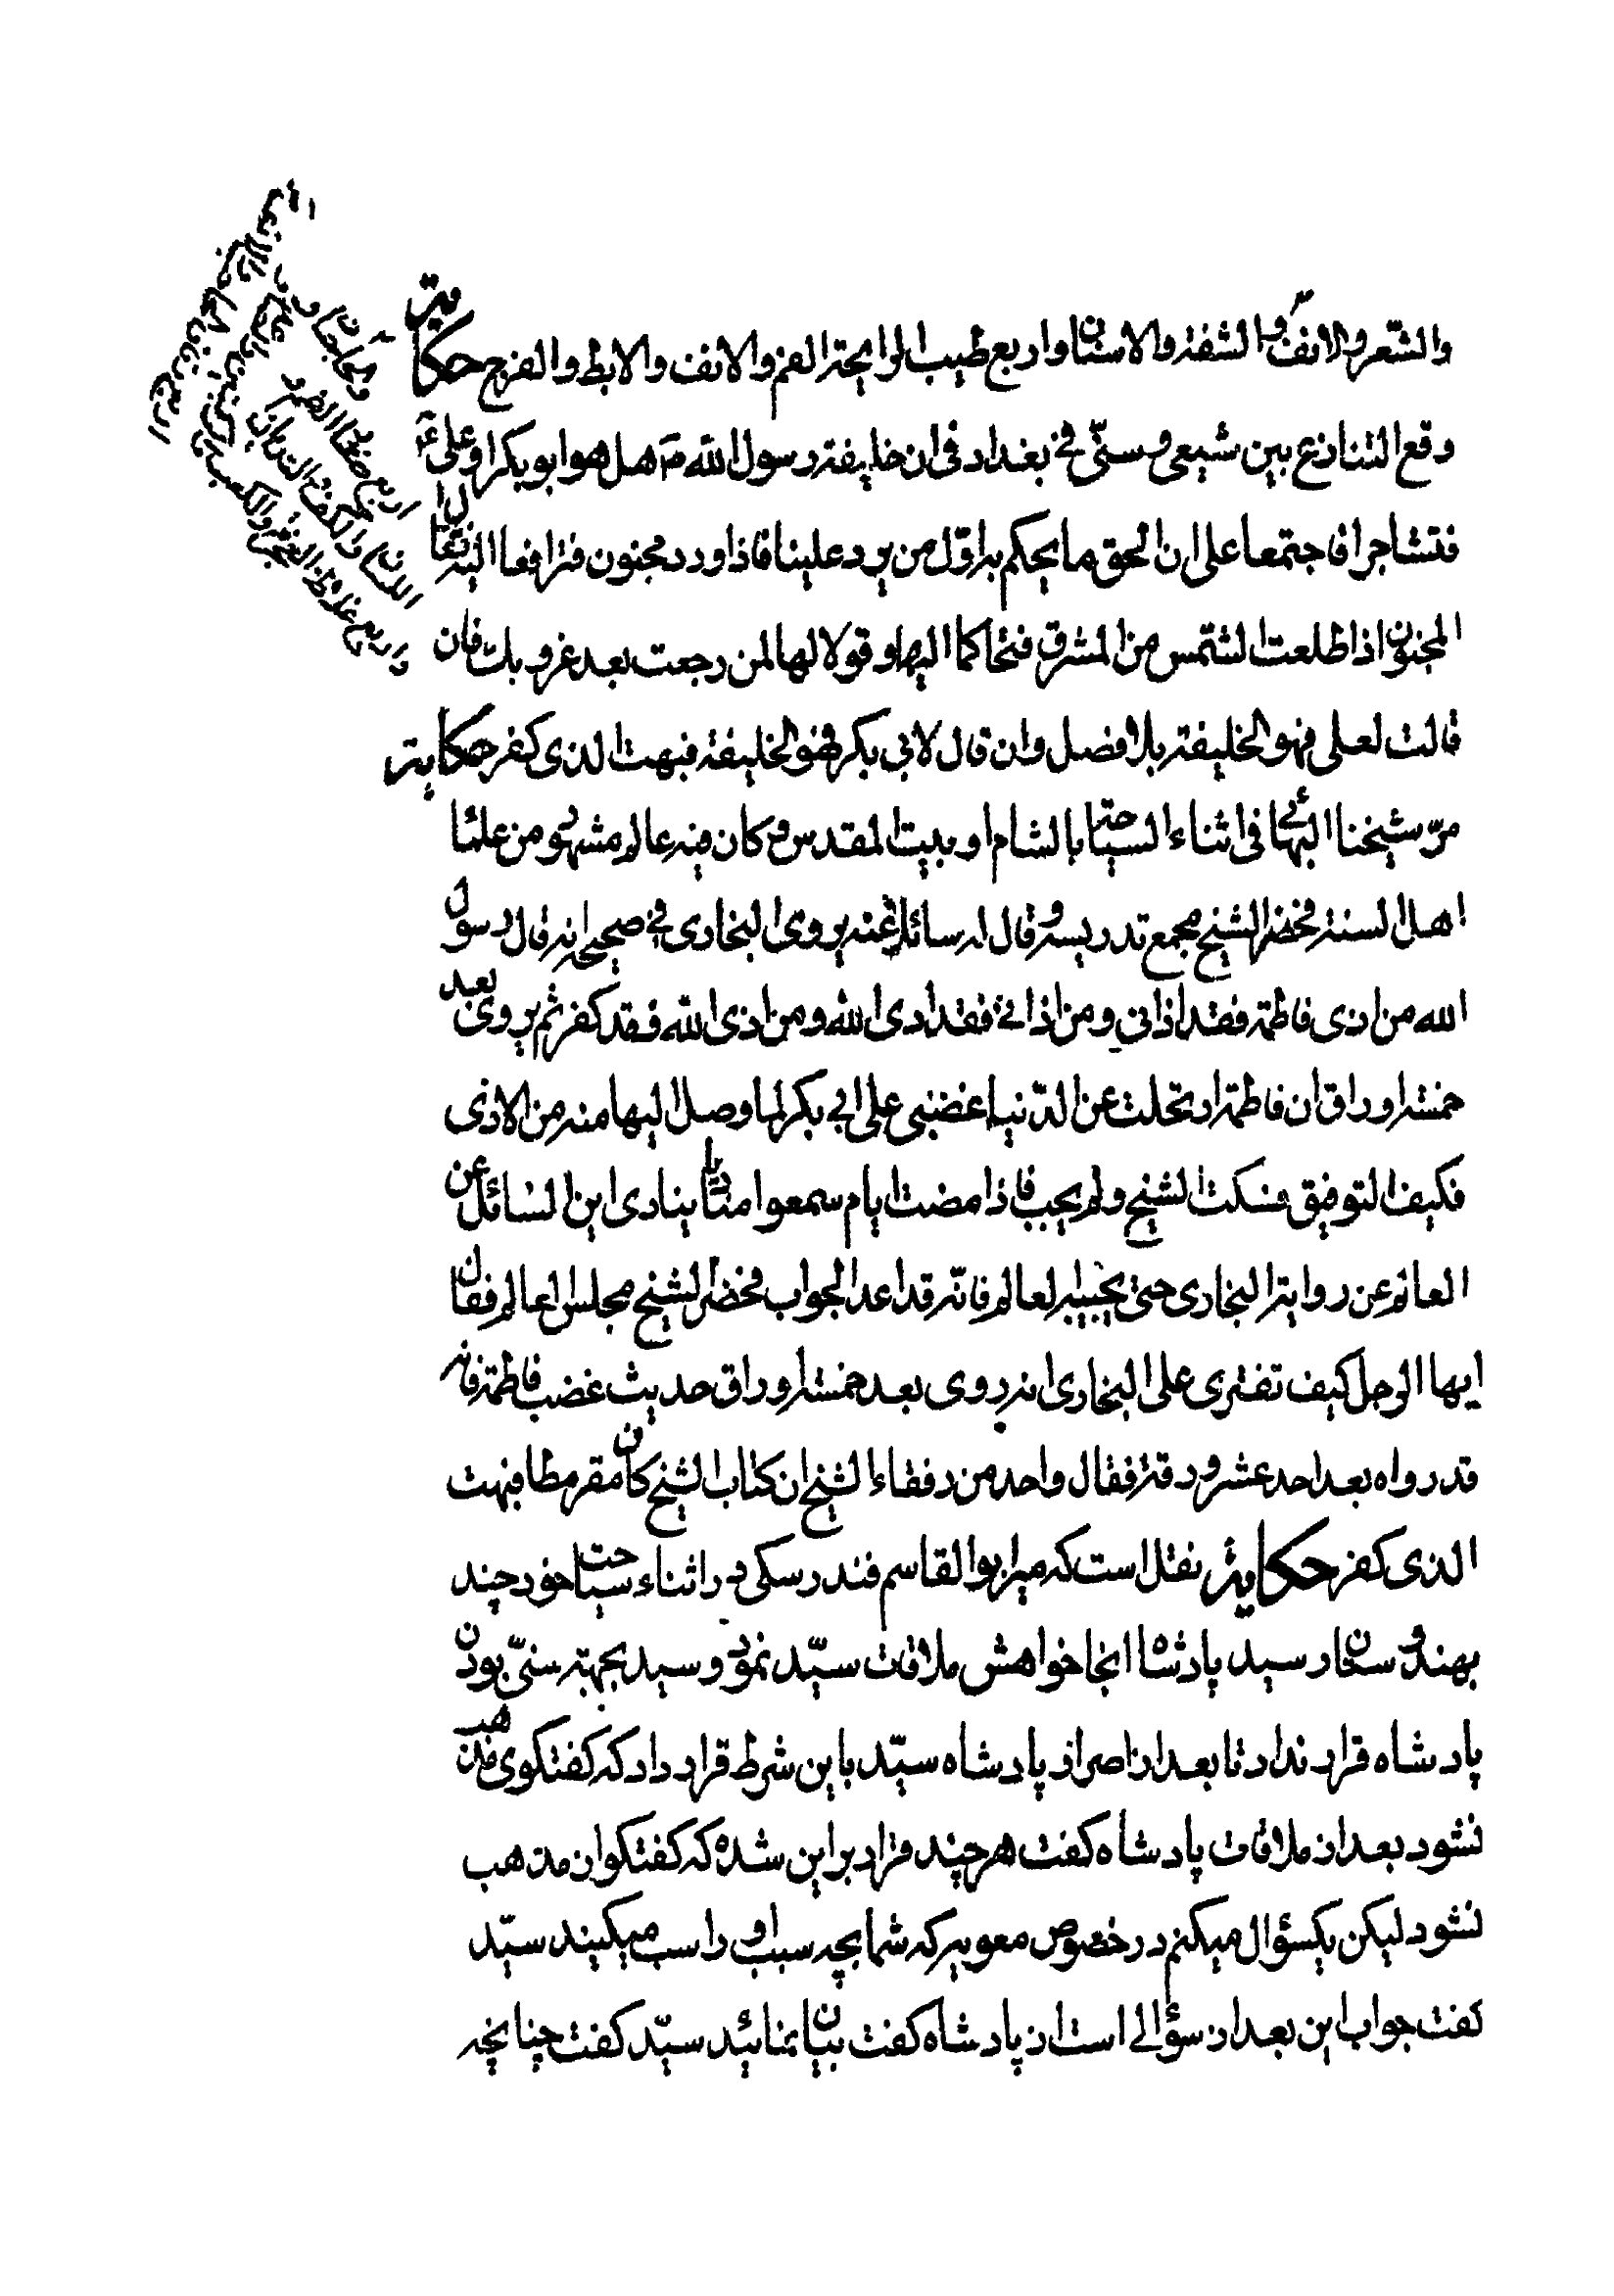 والشعر والانف والشفة والاسنان واربع طيب الرايحة الفم والانف والابط والفرج حكاية
وقع التنازع بين شيعى وسنّى فى بغداد فى ان خليفة رسول الله ص هل هو ابو بكر او على ع
فتشاجرا فاجتمعا على ان الحق ما يحكم به اوّل من يرد علينا فاذا ورد مجنون فترافعا اليه فقال
المجنون اذا طلعت الشمس من المشرق فتحاكما اليها وقولا لها لمن رجعت بعد غروبك فان
قالت لعلى فهو الخليفة بلا فصل وان قال لابى بكر فهو الخليفة فبهت الذى كفر حكاية
مرّ شيخنا البهائى فى اثناء السياحة بالشام او ببيت المقدس و كان فيه عالم مشهور من علماء
اهل السنة فحضر الشيخ مجمع تدريسه وقال له سائلا عنه يروى البخارى فى صحيحه انه قال رسول
الله من اذى فاطمة فقد اذانى ومن اذانى فقد ادى الله ومن اذى الله فقد كفر ثم يروى بعد
خمسة اوراق ان فاطمة ارتحلت عن الدّنيا غضبى على ابى بكر لما وصل اليها منه من الاذى
فكيف التوفيق فسكت الشيخ ولم يجب فاذا مضت ايام سمعوا مناديا ينادى اين السائل عن
العالم عن رواية البخارى حتى يجيبه العالم فانّه قد اعد الجواب فحضر الشيخ مجلس العالم فقال
ايها الرجل كيف تفترى على البخارى انه روى بعد خمسة اوراق حديث غضب فاطمة فانه
قد رواه بعد احد عشر ورقة فقال واحد من رفقاء الشيخ ان كتاب الشيخ كان مقرمطا فبهت
الذى كفر حكاية نقل است كه مير ابو القاسم فندرسكى در اثناء سياحت خود چند
بهندوستان رسيد پادشاه انجا خواهش ملاقات سيّد نمود و سيد بجهة سنّى بودن
پادشاه قرار نداد تا بعد از اصرار پادشاه سيّد باين شرط قرار داد كه كفتكوى مذهب
نشود بعد از ملاقات پادشاه كفت هر چند قرار بر اين شده كه كفتكو از مذهب
نشود ليكن يكسؤال ميكنم در خصوص معويه كه شما بچه سبب او را سب ميكنيد سيّد
كفت جواب اين بعد از سؤالى است از پادشاه كفت بيان بنمائيد سيّد كفت چنانچه